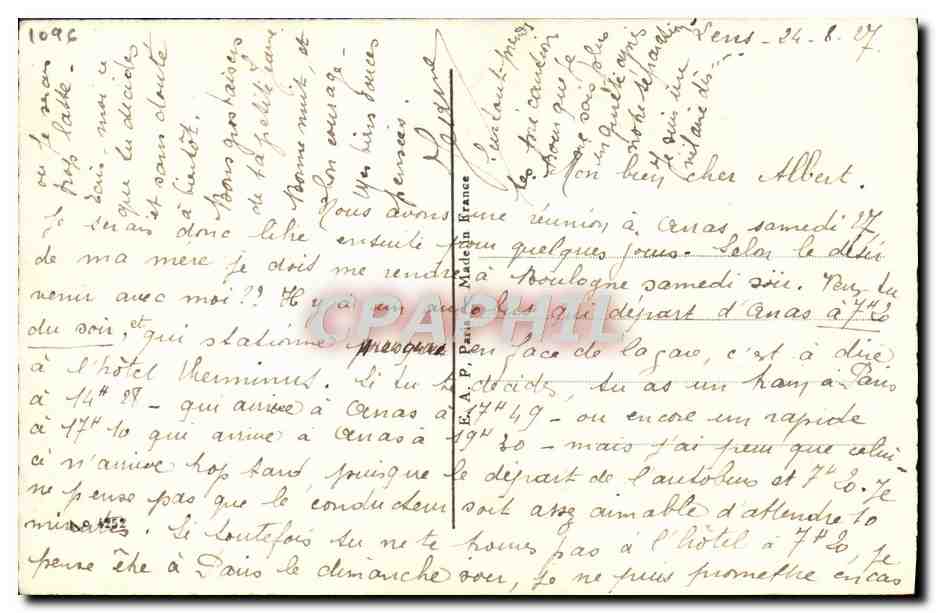 1096
Lens - 24-8-27.
Mon bien cher Albert.
Nous avons une réunion à Arras samedi 27,
Je serais donc libre ensuite pour quelques jours. Selon le désir
de ma mère je dois me rendre à Boulogne samedi soir. Veux-tu
venir avec moi?? Il y a un autobus qui départ d'Arras à 7H20
du soir, et qui stationne presque en face de la gare, c'est à dire
à l'hôtel Therminus. Si tu te décides, tu as un train à Paris
à 14H 28 - qui arrive à Arras à 17H49 - ou encore un rapide
à 17H 10 qui arrive à Arras à 19H 30 - mais j'ai peur que celui-
ci n'arrive trop tard, puisque le départ de l'autobus est 7H20. Je
ne pense pas que le conducteur soit assez aimable d'attendre 10
minutes. Si toutefois tu ne te trouves pas à l'hôtel à 7H20, je
pense être à Paris le dimanche soir, je ne puis promettre en cas
où je serais
trop lasse.
Ecris-moi ce
que tu décides
et sans doute
à bientôt.
Bons gros baisers
de ta petite
Bonne nuit, et
bon courage
Mes biens douces
pensées.
E. A. P. Paris Made in France
CPAPHIL
No 4252